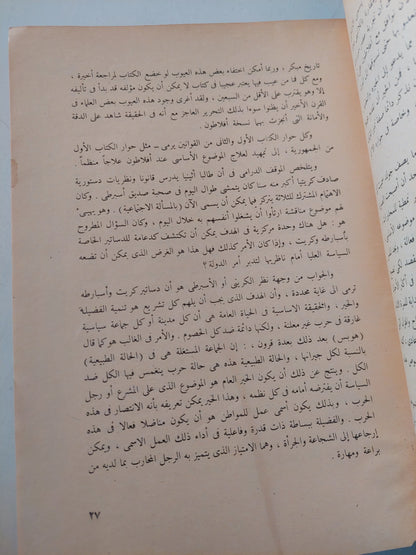 تاريخ مبكر ، وربما أمكن اختفاء بعض هذه العيوب لو خضع الكتاب لمراجعة أخيرة ،
ومع كل فما من عيب فيها يعتبر عجيبا فى كتاب لا يمكن أن يكون مؤلفه قد بدأ فى تأليفه
إلا وهو يقترب على الأقل من السبعين ، ولقد أغرى وجود هذه العيوب بعض العلماء فى
القرن الأخير أن يظنوا سوءا بذلك التحرير العاجز مع أنه فى الحقيقة شاهد على الدقة
والأمانة التى أنجزت بهما نسخة أفلاطون .
وكل حوار الكتاب الأول والثانى من القوانين يرمى – مثل حوار الكتاب الأول
من الجمهورية ، إلى تمهيد لعلاج الموضوع الأساسى عند أفلاطون علاجاً منظماً .
ويتلخص الموقف الدرامى فى أن طالبا أثينيا يدرس قانونا ونظريات دستورية
صادف كريتيا أكبر منه سنا كان يتمشى طوال اليوم فى صحبة صديق أسبرطى . وكان
الاهتمام المشترك للثلاثة يتركز فيما يمكن أن يسمى الآن (بالمسألة الاجتماعية) . وهو يهيىء
لهم موضوع مناقشة ارتأوا أن يشغلوا أنفسهم به خلال اليوم ، وكان السؤال المطروح
هو : هل هناك وحدة مركزية فى الهدف يمكن أن تكتشف كدعامة للدساتير الخاصة
بأسبارطه وكريت ، وإذا كان الأمر كذلك فهل هذا هو الغرض الذى يمكن أن تضعه
السياسة العليا أمام ناظريها لتدبر أمر الدولة ؟
والجواب من وجهة نظر الكريتى أو الأسبرطى هو أن دساتير كريت وأسبارطه
ترمى الى غاية محددة ، وأن الهدف الذى يجب أن يلهم كل تشريع هو تنمية الفضيلة
والخير . والحقيقة الاساسية فى الحياة العامة هى أن كل مدينة أو كل جماعة سياسية
غارقة فى حرب غير معلنة ، ولكنها دائمة ضد كل الخصوم . والأمر فى الغالب هو كما قال
(هوبس) بعد ذلك بعدة قرون . : إن الجماعة المستقلة هى فى (الحالة الطبيعية)
بالنسبة لكل جيرانها ، والحالة الطبيعية هذه هى حالة حرب ينغمس فيها الكل ضد
الكل . وينتج عن ذلك أن يكون الخير العام هو الموضوع الذى على المشرع أو رجل
السياسة أن يفترضه أمامه فى كل نظمه ، وهذا الخير يمكن تعريفه بأنه الانتصار فى هذه
الحرب ، وبذلك يكون أسمى عمل للمواطن هو أن يكون مناضلا فعالا فى هذه
الحرب . والفضيلة ببساطة ذات قدرة وفاعلية فى أداء ذلك العمل الاسمى ، ويمكن
إرجاعها إلى الشجاعة والجرأة ، وهما الامتياز الذى يتميز به الرجل المحارب بما لديه من
براعة ومهارة .
٢٧